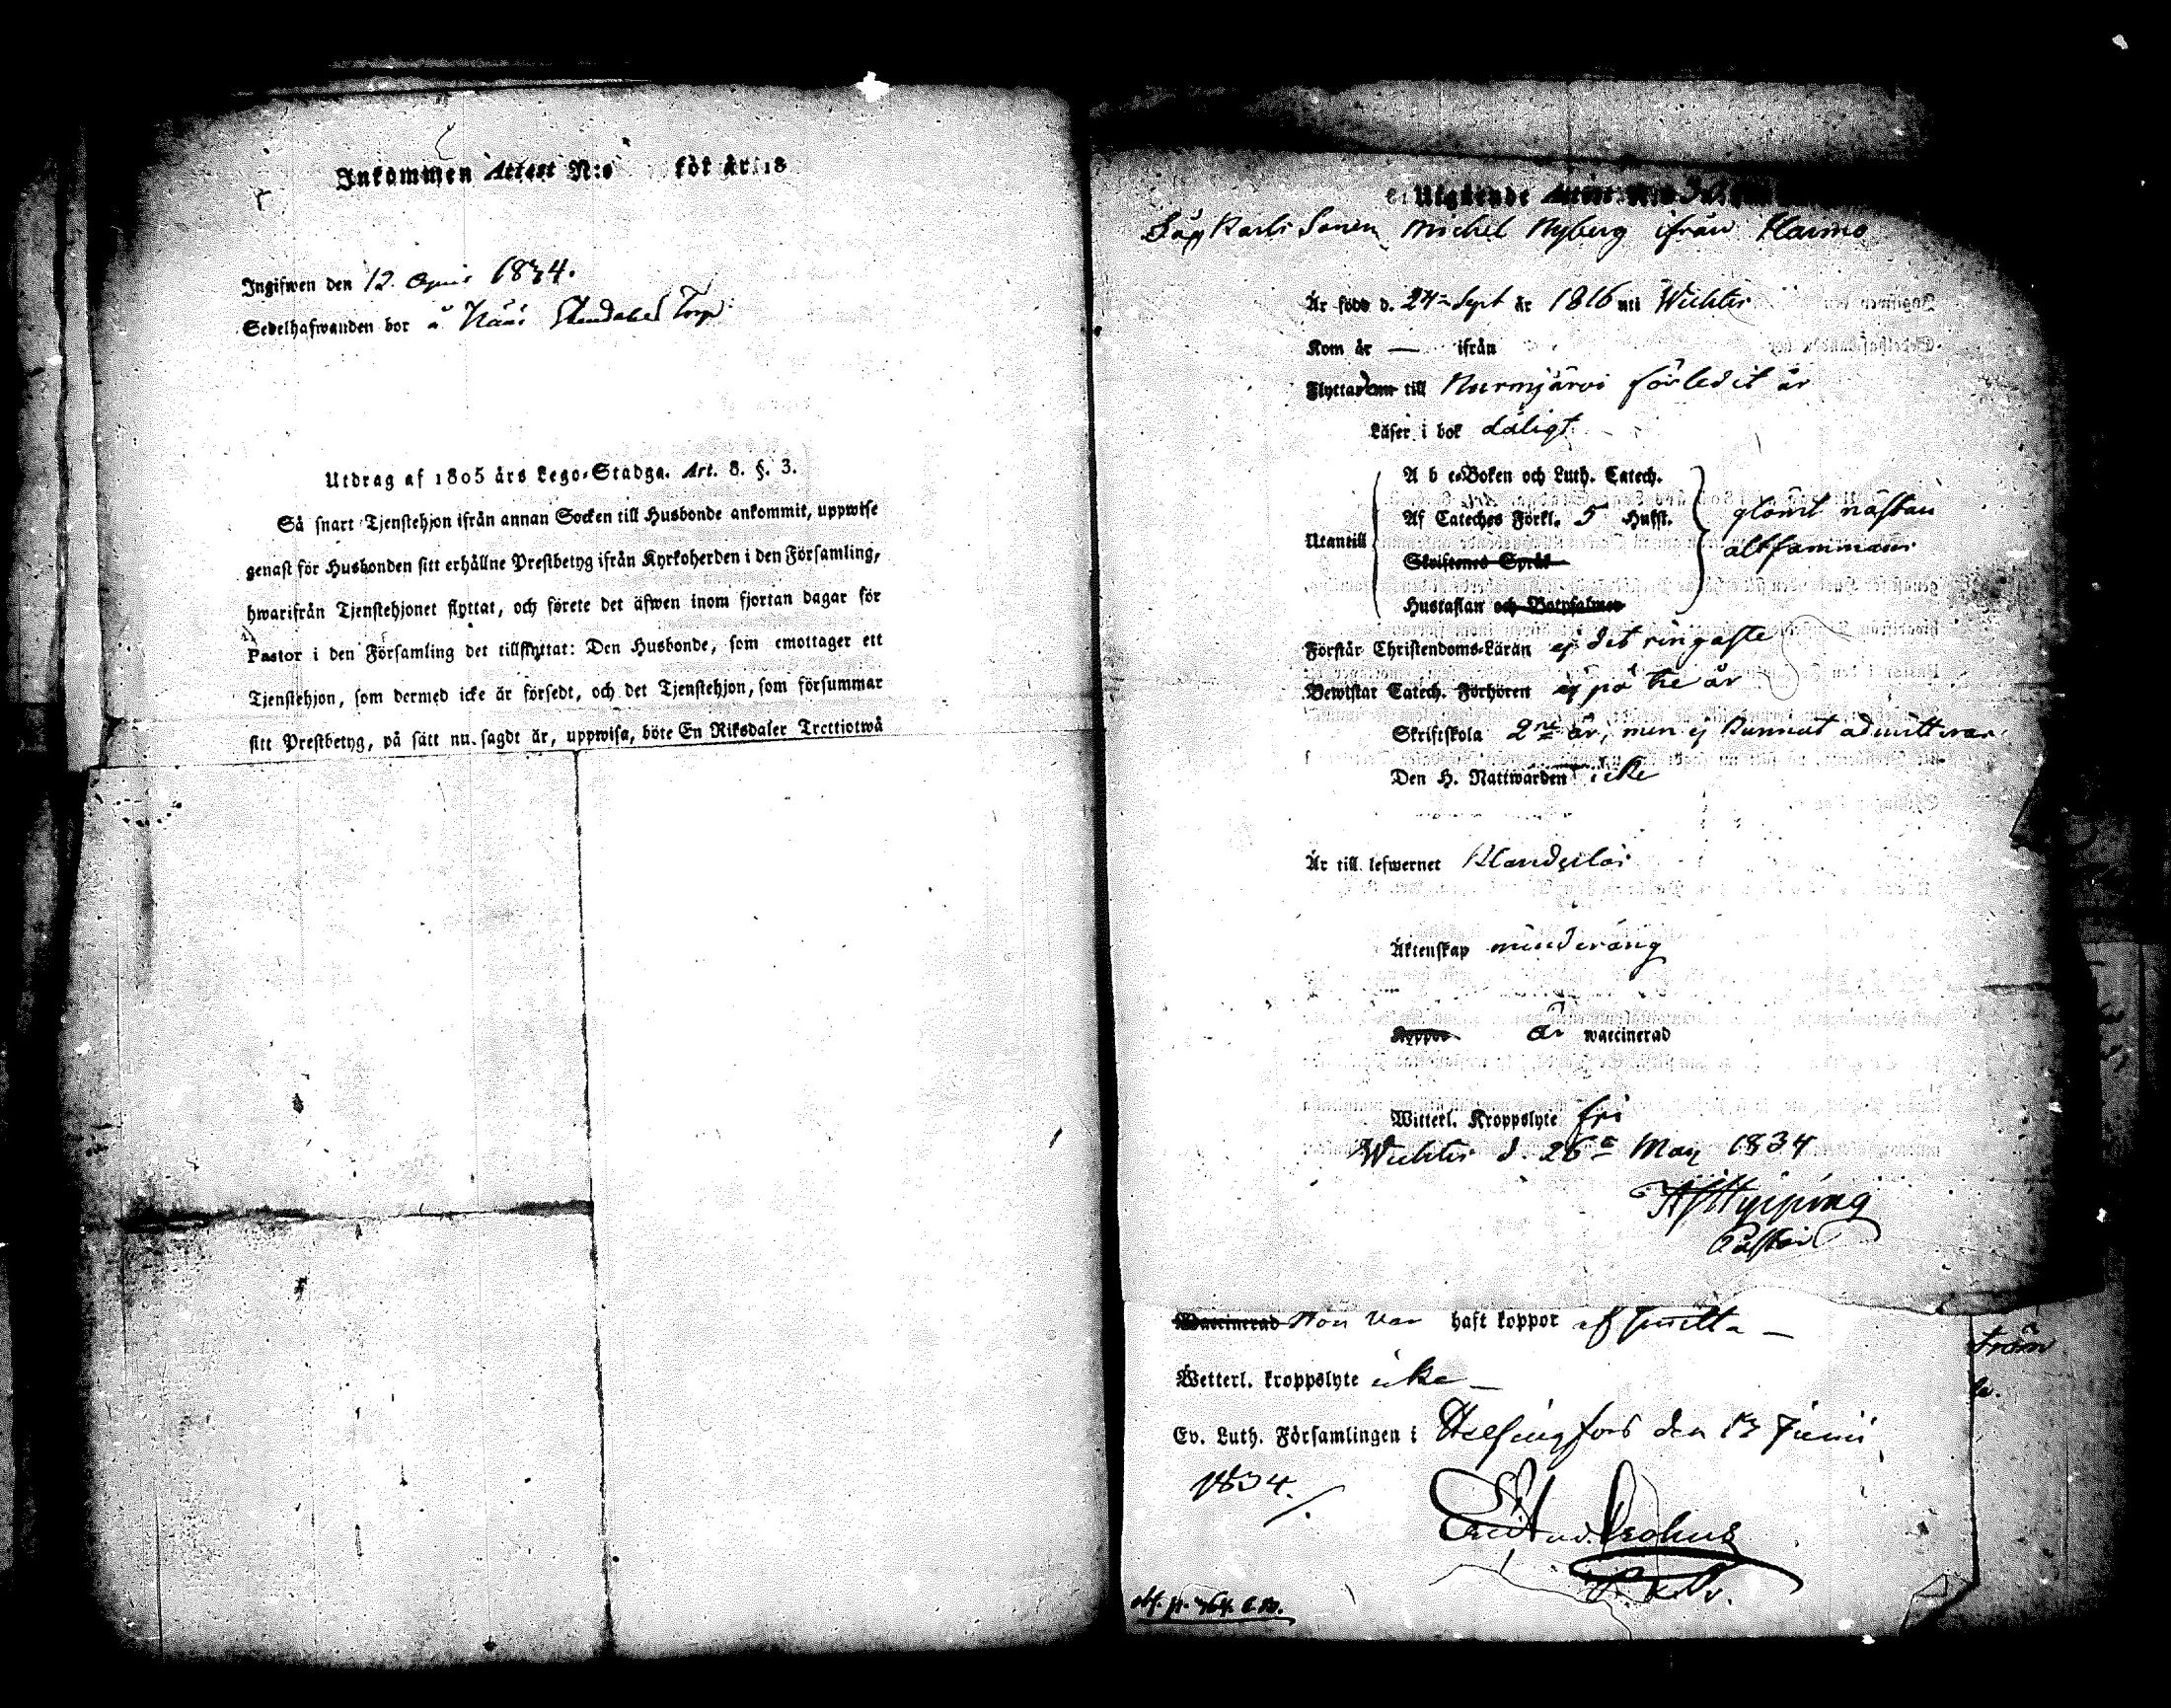 Inkommen Attest N:o för år 18
Ingifwen den 12. 1834.
Sedelhafwanden bor å Torp
Utdrag af 1805 års Lego-Stadga. Art. 8. §. 3.
Så snart Tjenstehjon ifrån annan Socken till Husbonde ankommit, uppwise
genast för Husbonden sitt erhållne Prestbetyg ifrån Kyrkoherden i den Församling,
hwarifrån Tjenstehjonet flyttat, och förete det äfwen inom fjortan dagar för
Pastor i den Församling det tillflyttat: Den Husbonde, som emottager ett
Tjenstehjon, som dermed icke är försedt, och det Tjenstehjon, som försummar
sitt Prestbetyg, på sätt nu sagdt är, uppwisa, böte En Riksdaler Trettiotwå
Utgående Attest N:o
Michel Nyberg ifrån
Är född d. 24 Sept år 1816 uti Wichtis
Kom år — ifrån
till Nurmijärvi förledit år
Läser i bok dåligt
A b c-Boken och Luth. Catech.
Af Cateches Förkl. 5 Hufst. glömt nästan
Utantill altsammans
Skriftenes Språk
Hustaflan och Botpsalmer
Förstår Christendoms-Läran ej det ringaste
Bewistar Catech. Förhören ej på tre år
Skriftskola 2 år, men ej kunnat admitteras
Den H. Nattwarden icke
Är till lefwernet klanderlös
Äktenskap minderårig
Koppor är waccinerad
Witterl. Kroppslyte fri
Wichtis d. 26 May 1834
Pastor
Waccinerad Hon har haft koppor
Wetterl. kroppslyte icke —
Ev. Luth. Församlingen i Helsingfors den 13 Junii
1834.